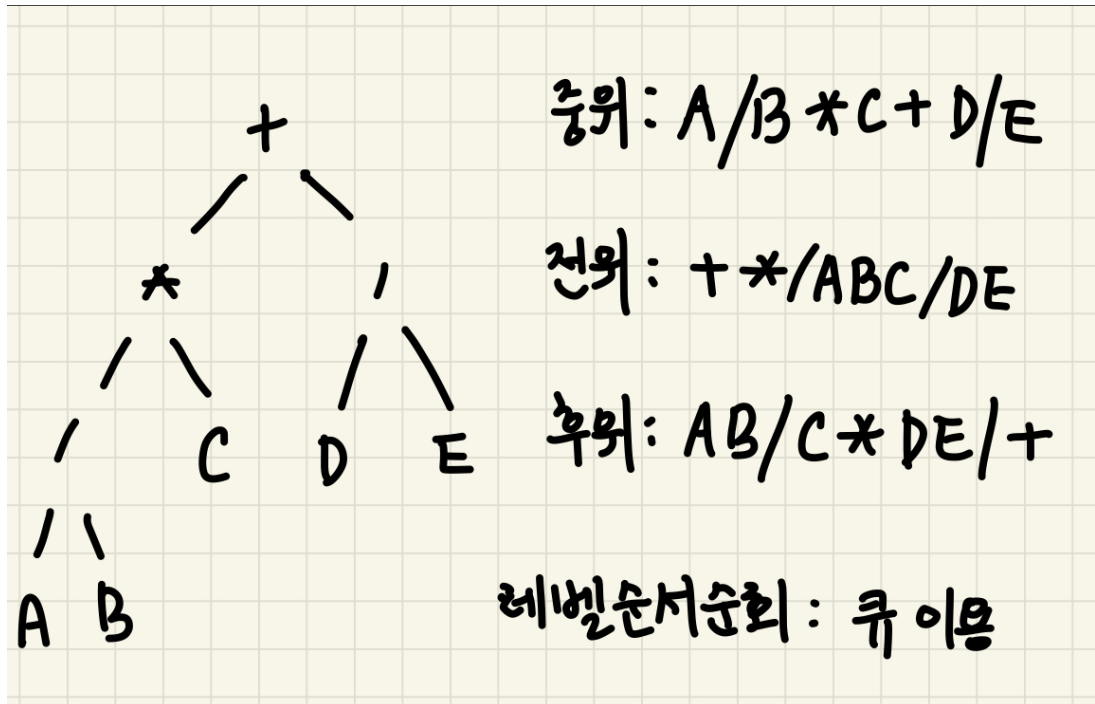 +
* /
/ C D E
A B
중위: A/B*C+D/E
전위: +*/ABC/DE
후위: AB/C*DE/+
레벨순서순회: 큐 이용